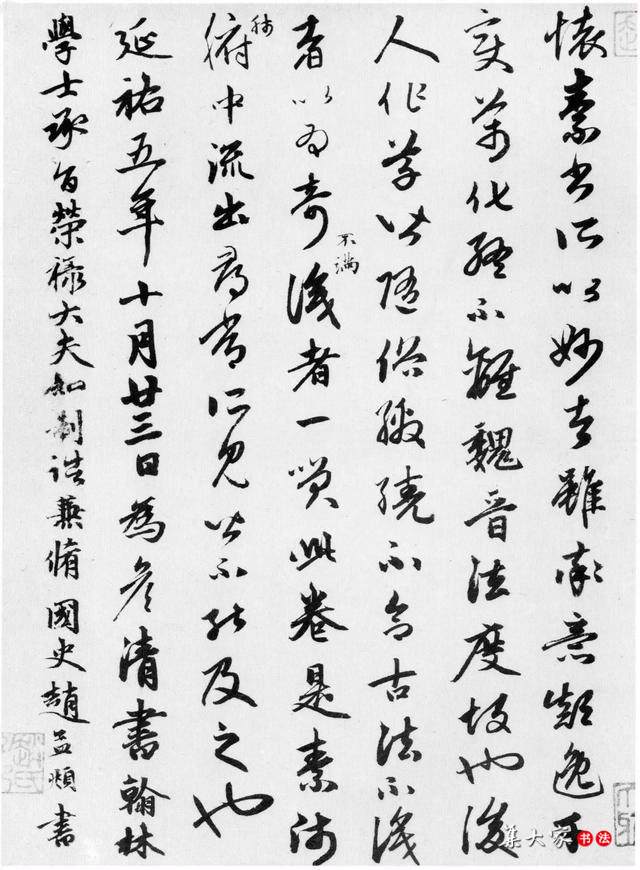 懷素書所以妙者雖率意顛逸千
變萬化終不離魏晉法度故也後
人作草皆隨俗繳繞不合古法不識
者以為奇不滿識者一笑此卷是素師
肺腑中流出尋常所見皆不能及之也
延祐五年十月廿三日為彥清書翰林
學士承旨榮祿大夫知制誥兼脩國史趙孟頫書
集大家书法